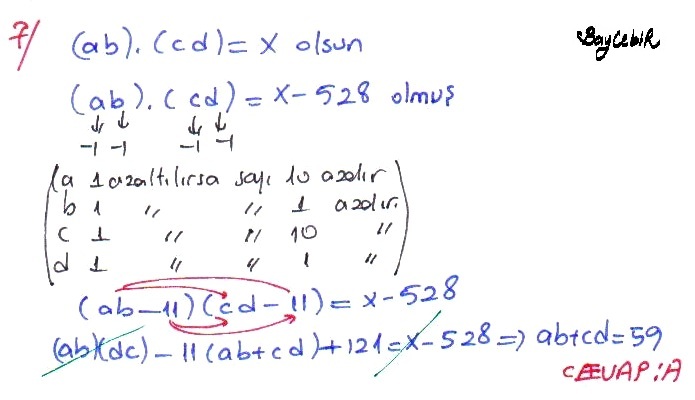 7/ (ab).(cd)=x olsun
BayCebiR
(ab).(cd)=x-528 olmuş
-1 -1 -1 -1
(a 1 azaltılırsa sayı 10 azalır
b 1 " " 1 azalır.
c 1 " " 10 "
d 1 " " 1 ")
(ab-11)(cd-11)=x-528
(ab)(dc)-11(ab+cd)+121=x-528=>ab+cd=59
CEVAP:A